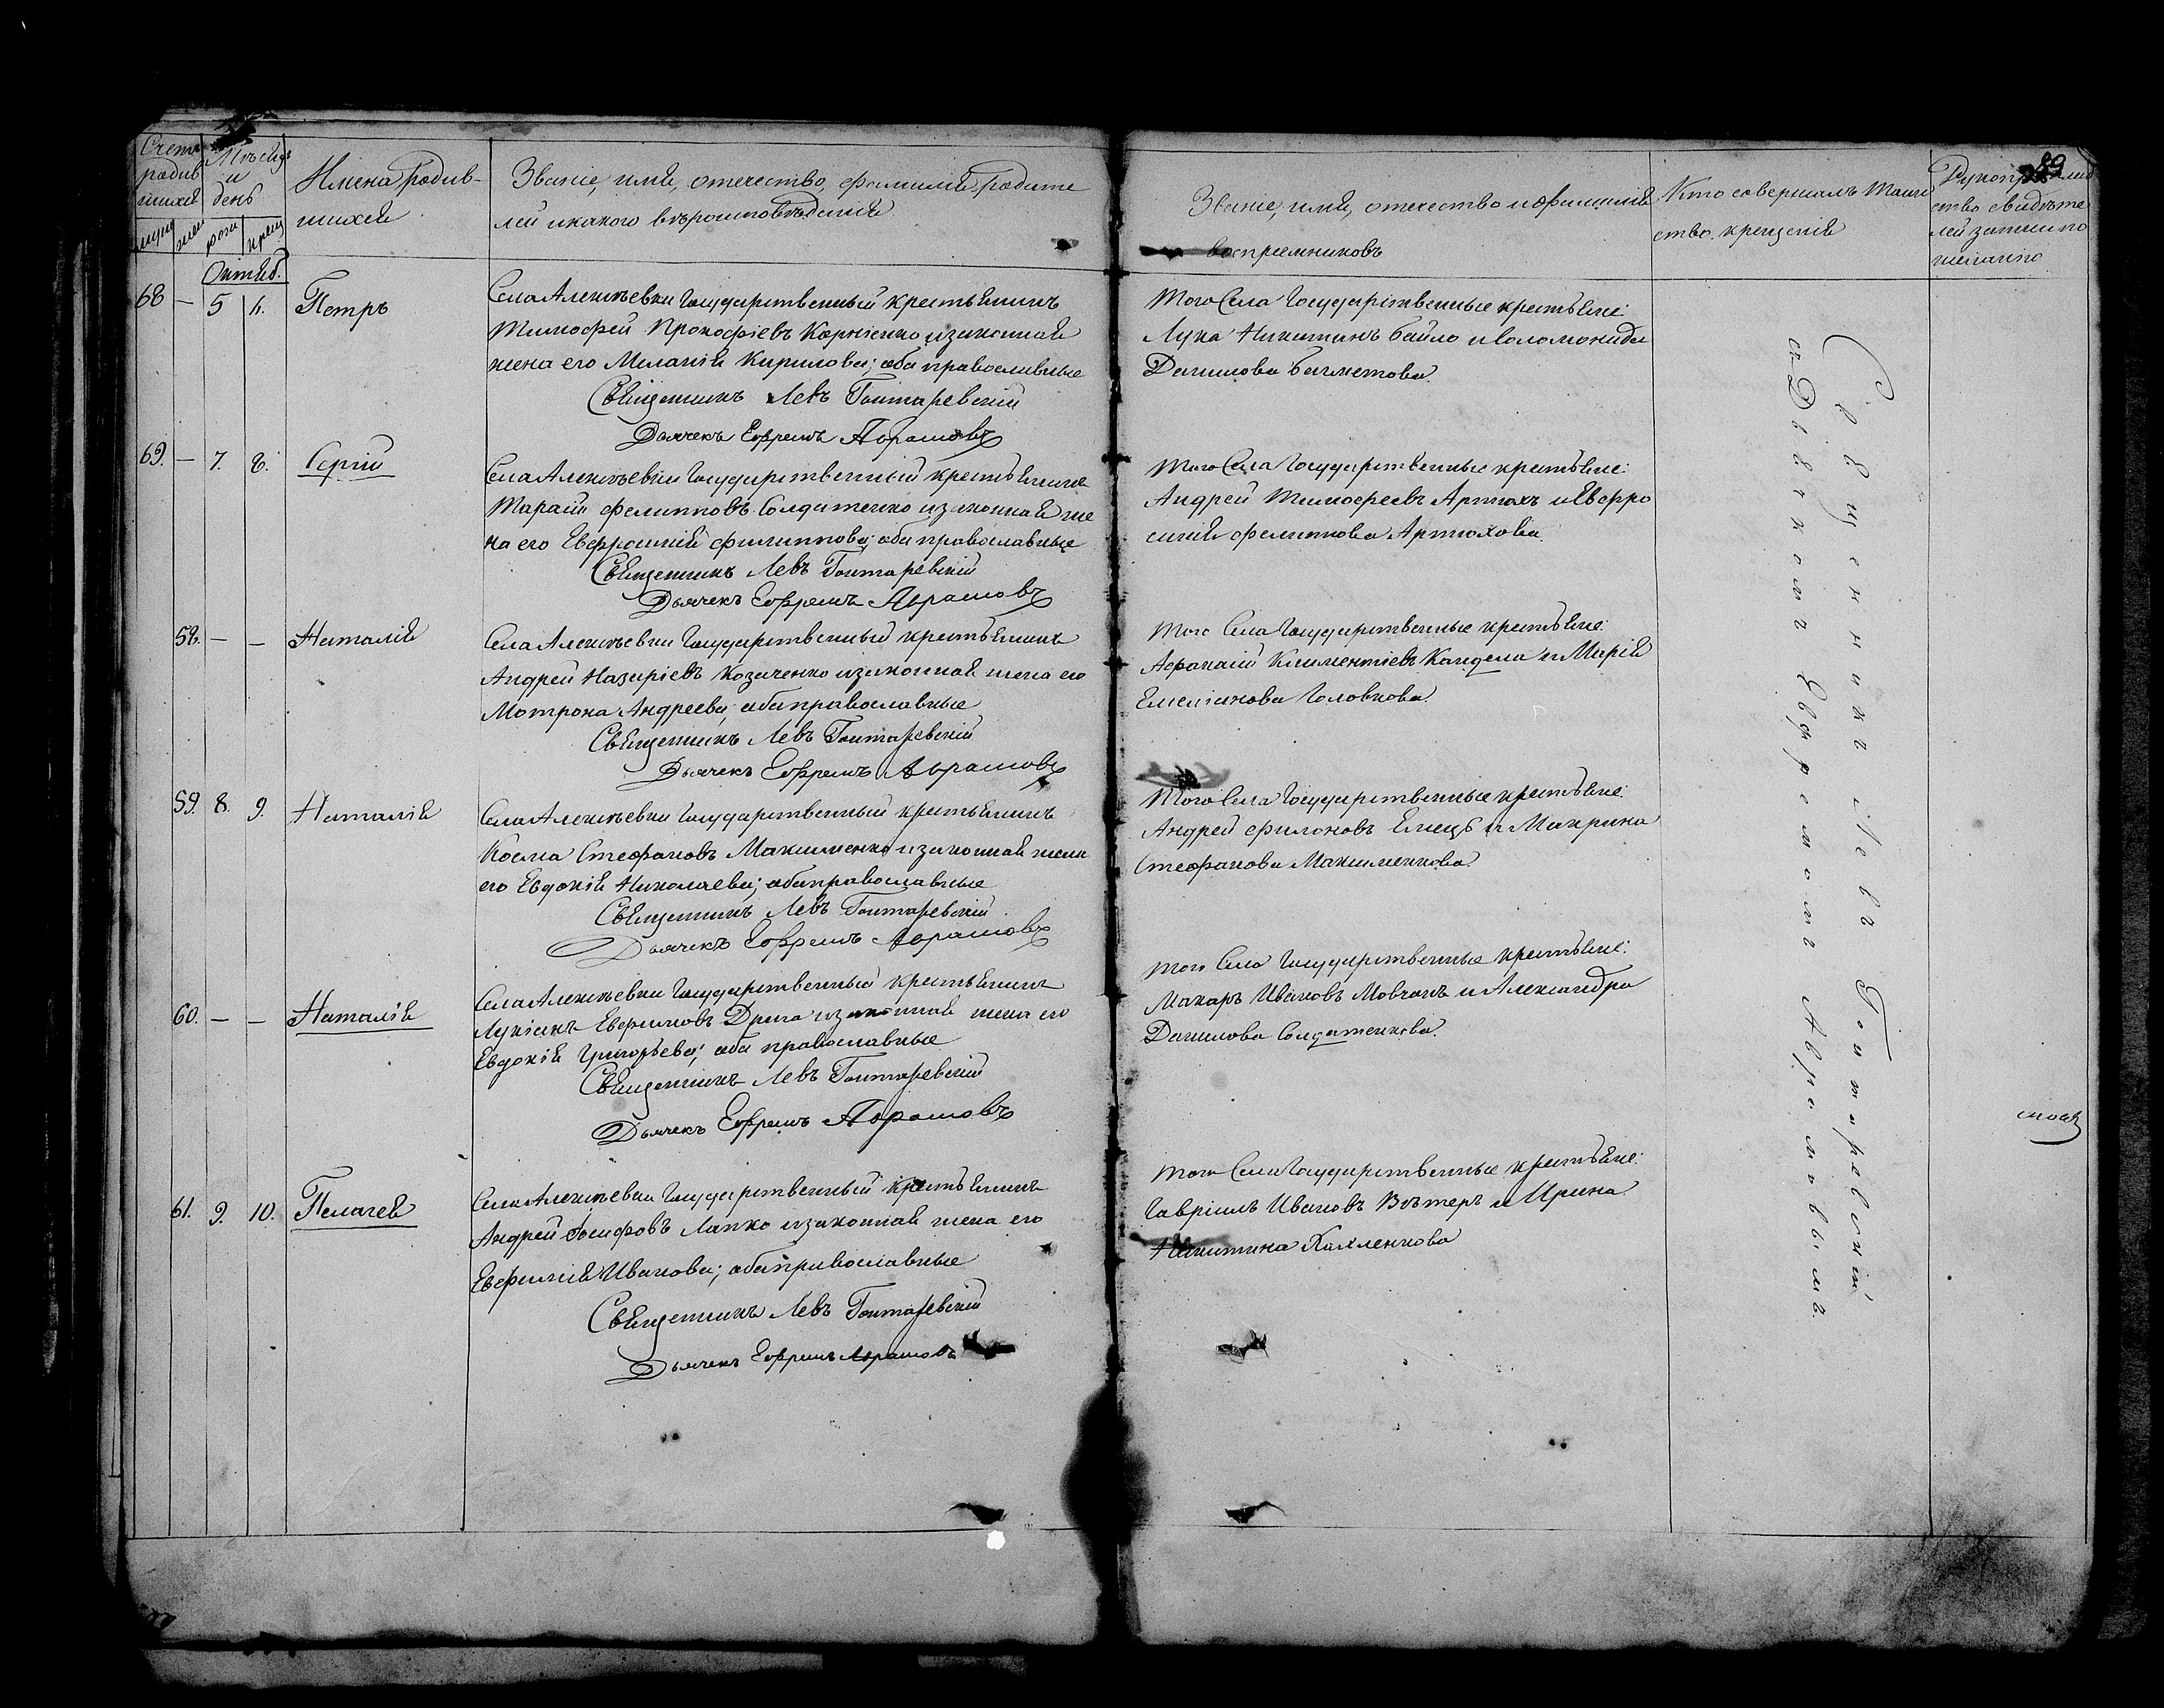 89
Счетъ родив шихся
Мѣсяцъ и день
Имена родив-
шихся
Званіе, имя, отечество, фамилія родите
лей и какого вѣроисповѣданія
Званіе, имя, отечество и фамилія
воспріемниковъ
Кто совершалъ таин
ство крещенія
ство свидѣте
лей записи по
желанію
муж жен рож крещ
Октяб.
68 — 5 6. Петръ
Села Алексѣевки Государственный крестьянинъ
Тимофей Прокофіевъ Корніенко и законная
жена его Меланія Кирилова; оба православные
Священникъ Левъ Гонтаревскій
Дьячекъ Ефремъ Аврамовъ
Того Села Государственные крестьяне:
Лука Никитинъ Байло и Соломонида
Данилова Бахметова.
69. — 7. 8. Сергій
Села Алексѣевки Государственный крестьянинъ
Тарасій Филиповъ Солдатенко и законная же
на его Евфросинія Филиппова; оба православные
Священникъ Левъ Гонтаревскій
Дьячекъ Ефремъ Аврамовъ
Того Села Государственные крестьяне:
Андрей Тимофеевъ Артюхъ и Евфро
синія Филипова Артюхова.
58. — — Наталія
Села Алексѣевки Государственный крестьянинъ
Андрей Назаріевъ Козаченко и законная жена его
Мотрона Андреева; оба православные
Священникъ Левъ Гонтаревскій
Дьячекъ Ефремъ Аврамовъ
Того Села Государственные крестьяне:
Афанасій Климентіевъ Кандела и Марія
Емеліанова Головкова.
59. 8. 9. Наталія
Села Алексѣевки Государственный крестьянинъ
Косма Стефановъ Максименко и законная жена
его Евдокія Николаева; оба православные
Священникъ Левъ Гонтаревскій
Дьячекъ Ефремъ Аврамовъ
Того Села Государственные крестьяне:
Андрей Филоновъ Емецъ и Макрина
Стефанова Максименкова.
60. — — Наталія
Села Алексѣевки Государственный крестьянинъ
Лукіанъ Евфимовъ Дрига и законная жена его
Евдокія Григорьева; оба православные
Священникъ Левъ Гонтаревскій
Дьячекъ Ефремъ Аврамовъ
Того Села Государственные крестьяне:
Макаръ Ивановъ Мовчанъ и Александра
Данилова Солдатенкова.
61. 9. 10. Пелагея
Села Алексѣевки Государственный крестьянинъ
Андрей Іосифовъ Лапко и законная жена его
Евфимія Иванова; оба православные
Священникъ Левъ Гонтаревскій
Дьячекъ Ефремъ Аврамовъ
Того Села Государственные крестьяне:
Гавріилъ Ивановъ Вѣтеръ и Ирина
Никитина
Священникъ Левъ Гонтаревскій
съ Дьячкомъ Ефремомъ Аврамовымъ.